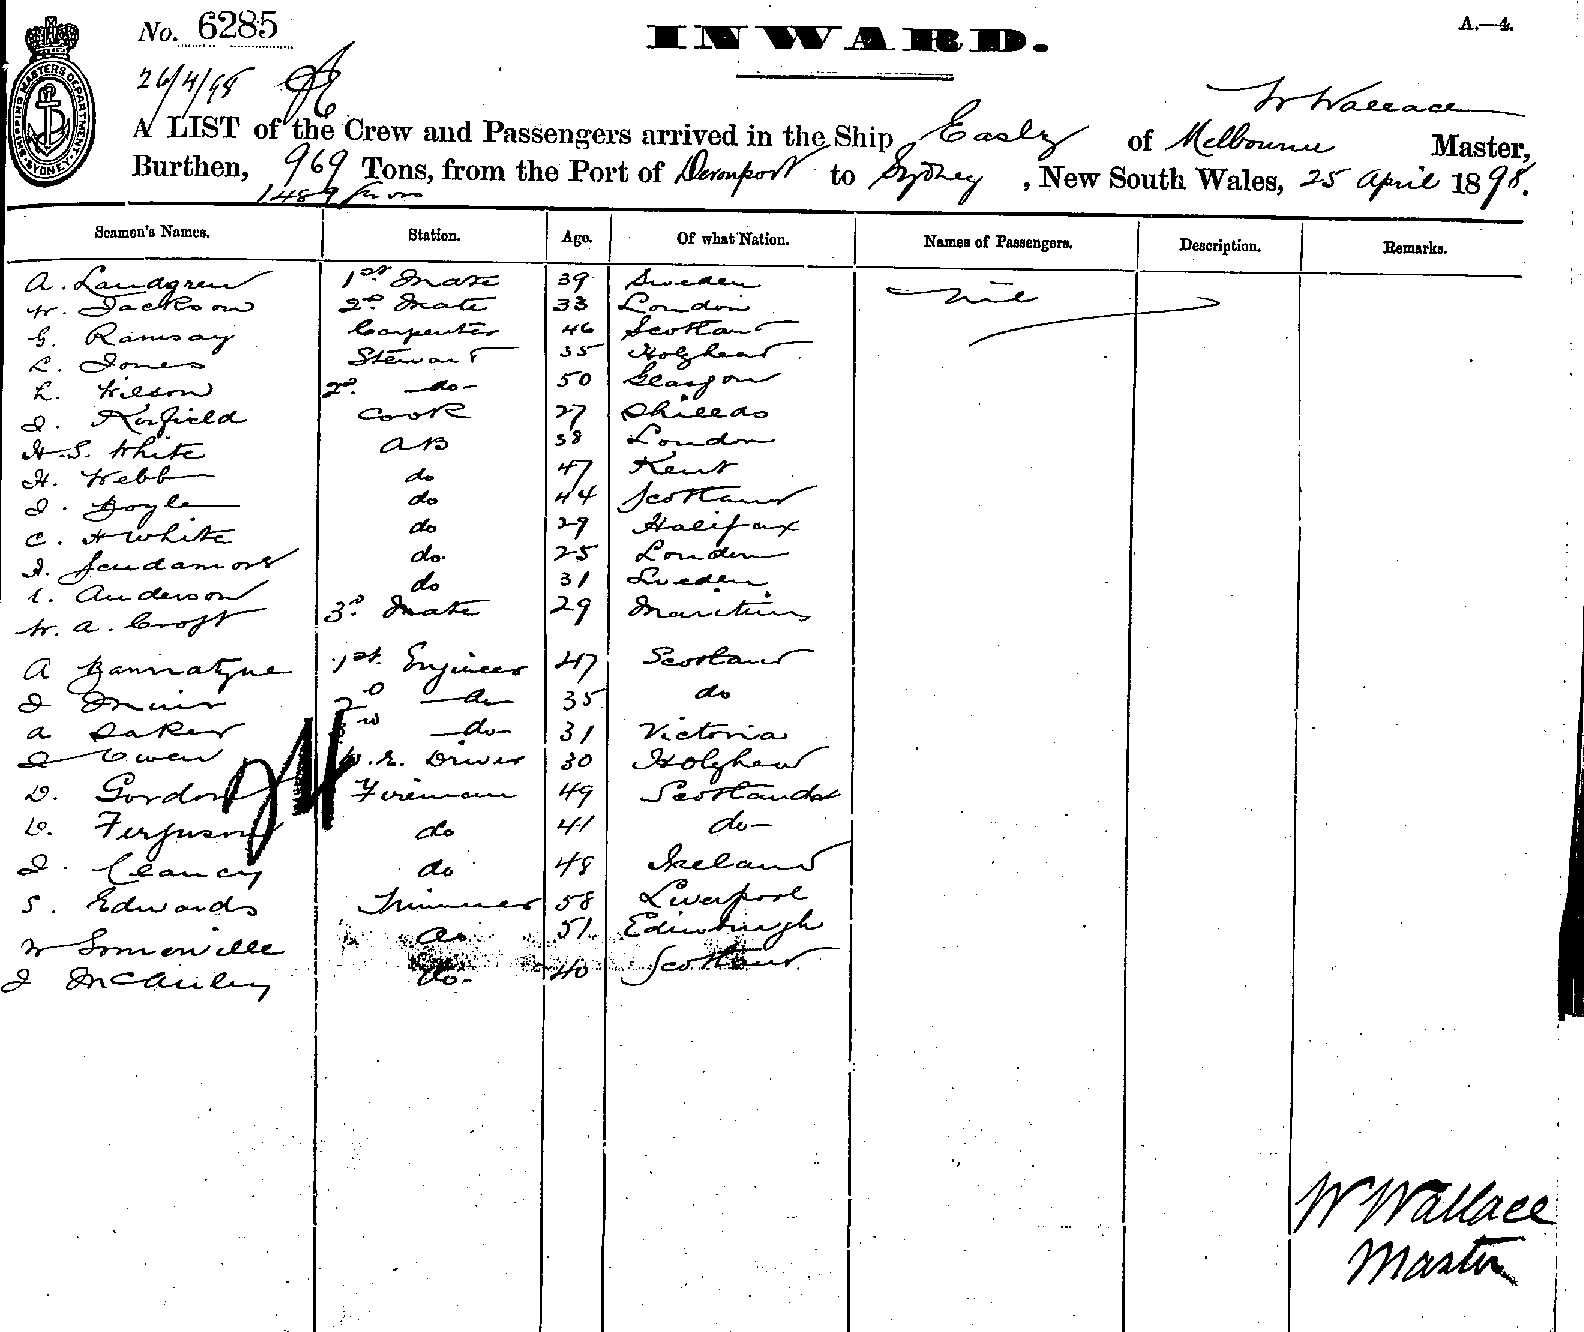 No. 6285
INWARD.
A.—4.
SHIPPING MASTERS DEPARTMENT SYDNEY
26/4/98
W Wallace
A LIST of the Crew and Passengers arrived in the Ship Easby of Melbourne Master,
Burthen, 969 Tons, from the Port of Devonport to Sydney, New South Wales, 25 April 1898.
1489
Seamen's Names. Station. Age. Of what Nation. Names of Passengers. Description. Remarks.
A. Landgren 1st Mate 39 Sweden nil
W. Jackson 2d Mate 33 London
G. Ramsay Carpenter 46 Scotland
L. Jones Steward 35 Holyhead
L. Wilson 2d do 50 Glasgow
J. Korfield Cook 27 Shields
H. S. White AB 38 London
H. Webb do 47 Kent
J. Boyle do 44 Scotland
C. H White do 29 Halifax
J. Scudamore do 25 London
C. Anderson do 31 Sweden
W. A. Croft 3d Mate 29 Mauritius
A Bannatyne 1st Engineer 47 Scotland
J Muir 2d do 35 do
A Baker 3rd do 31 Victoria
J Owen W.E. Driver 30 Holyhead
D. Gordon Fireman 49 Scotland
D. Ferguson do 41 do
J. Clancy do 48 Ireland
S. Edwards Trimmer 58 Liverpool
W Somerville do 51 Edinburgh
J McAuley do 40 Scotland
W Wallace
Master